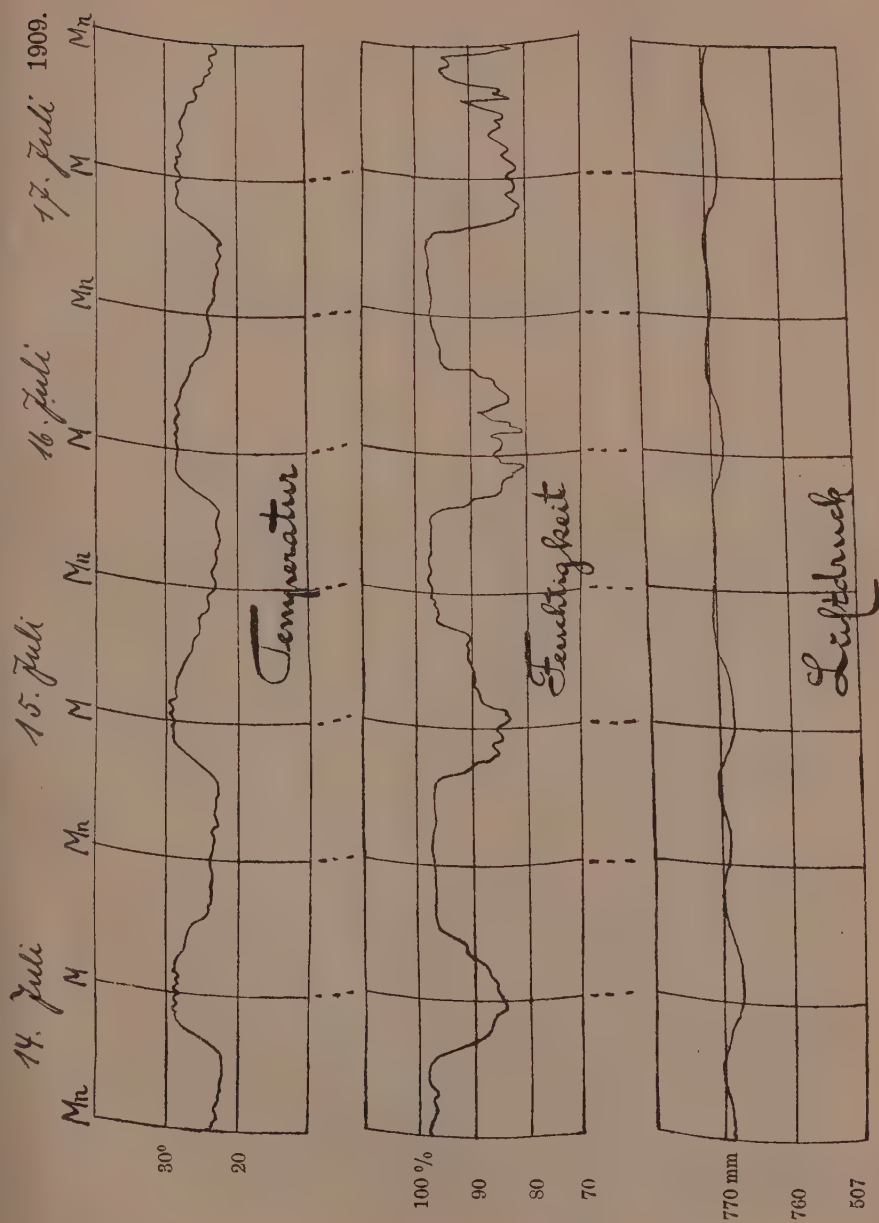 14. Juli 15. Juli 16. Juli 17. Juli 1909.
Mn M Mn M Mn M Mn M Mn
30°
20
Temperatur
100 %
90
80
70
Feuchtigkeit
770 mm
760
507
Luftdruck